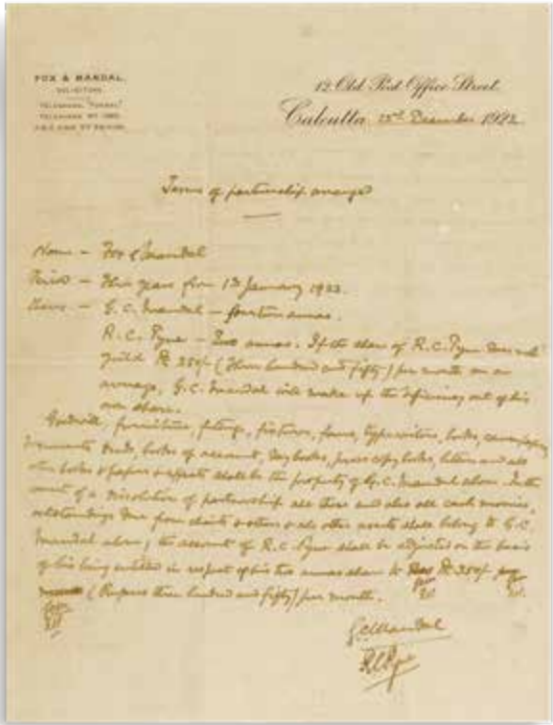 FOX & MANDAL.
SOLICITORS.
12, Old Post Office Street.
Calcutta 15th December 1922.
Terms of partnership arranged
Name – Fox & Mandal
Period – Three years from 1st January 1923.
Shares – G. C. Mandal – fourteen annas.
R. C. Pyne – Two annas. If the share of R. C. Pyne does not
yield Rs 350/- (Three hundred and fifty) per month on an
average, G. C. Mandal will make up the deficiency out of his
own share.
Goodwill, furniture, fittings, fixtures, fans, typewriters, books,
documents deeds, books of account, Day books, press copy books, letters and all
other books & papers & effects shall be the property of G. C. Mandal alone. In the
event of a dissolution of partnership all these and also all cash monies,
outstandings due from clients & others & all other assets shall belong to G. C.
Mandal alone; the account of R. C. Pyne shall be adjusted on the basis
of his being entitled in respect of his two annas share to Rs 350/-
(Rupees three hundred and fifty) per month.
G C Mandal
R C Pyne